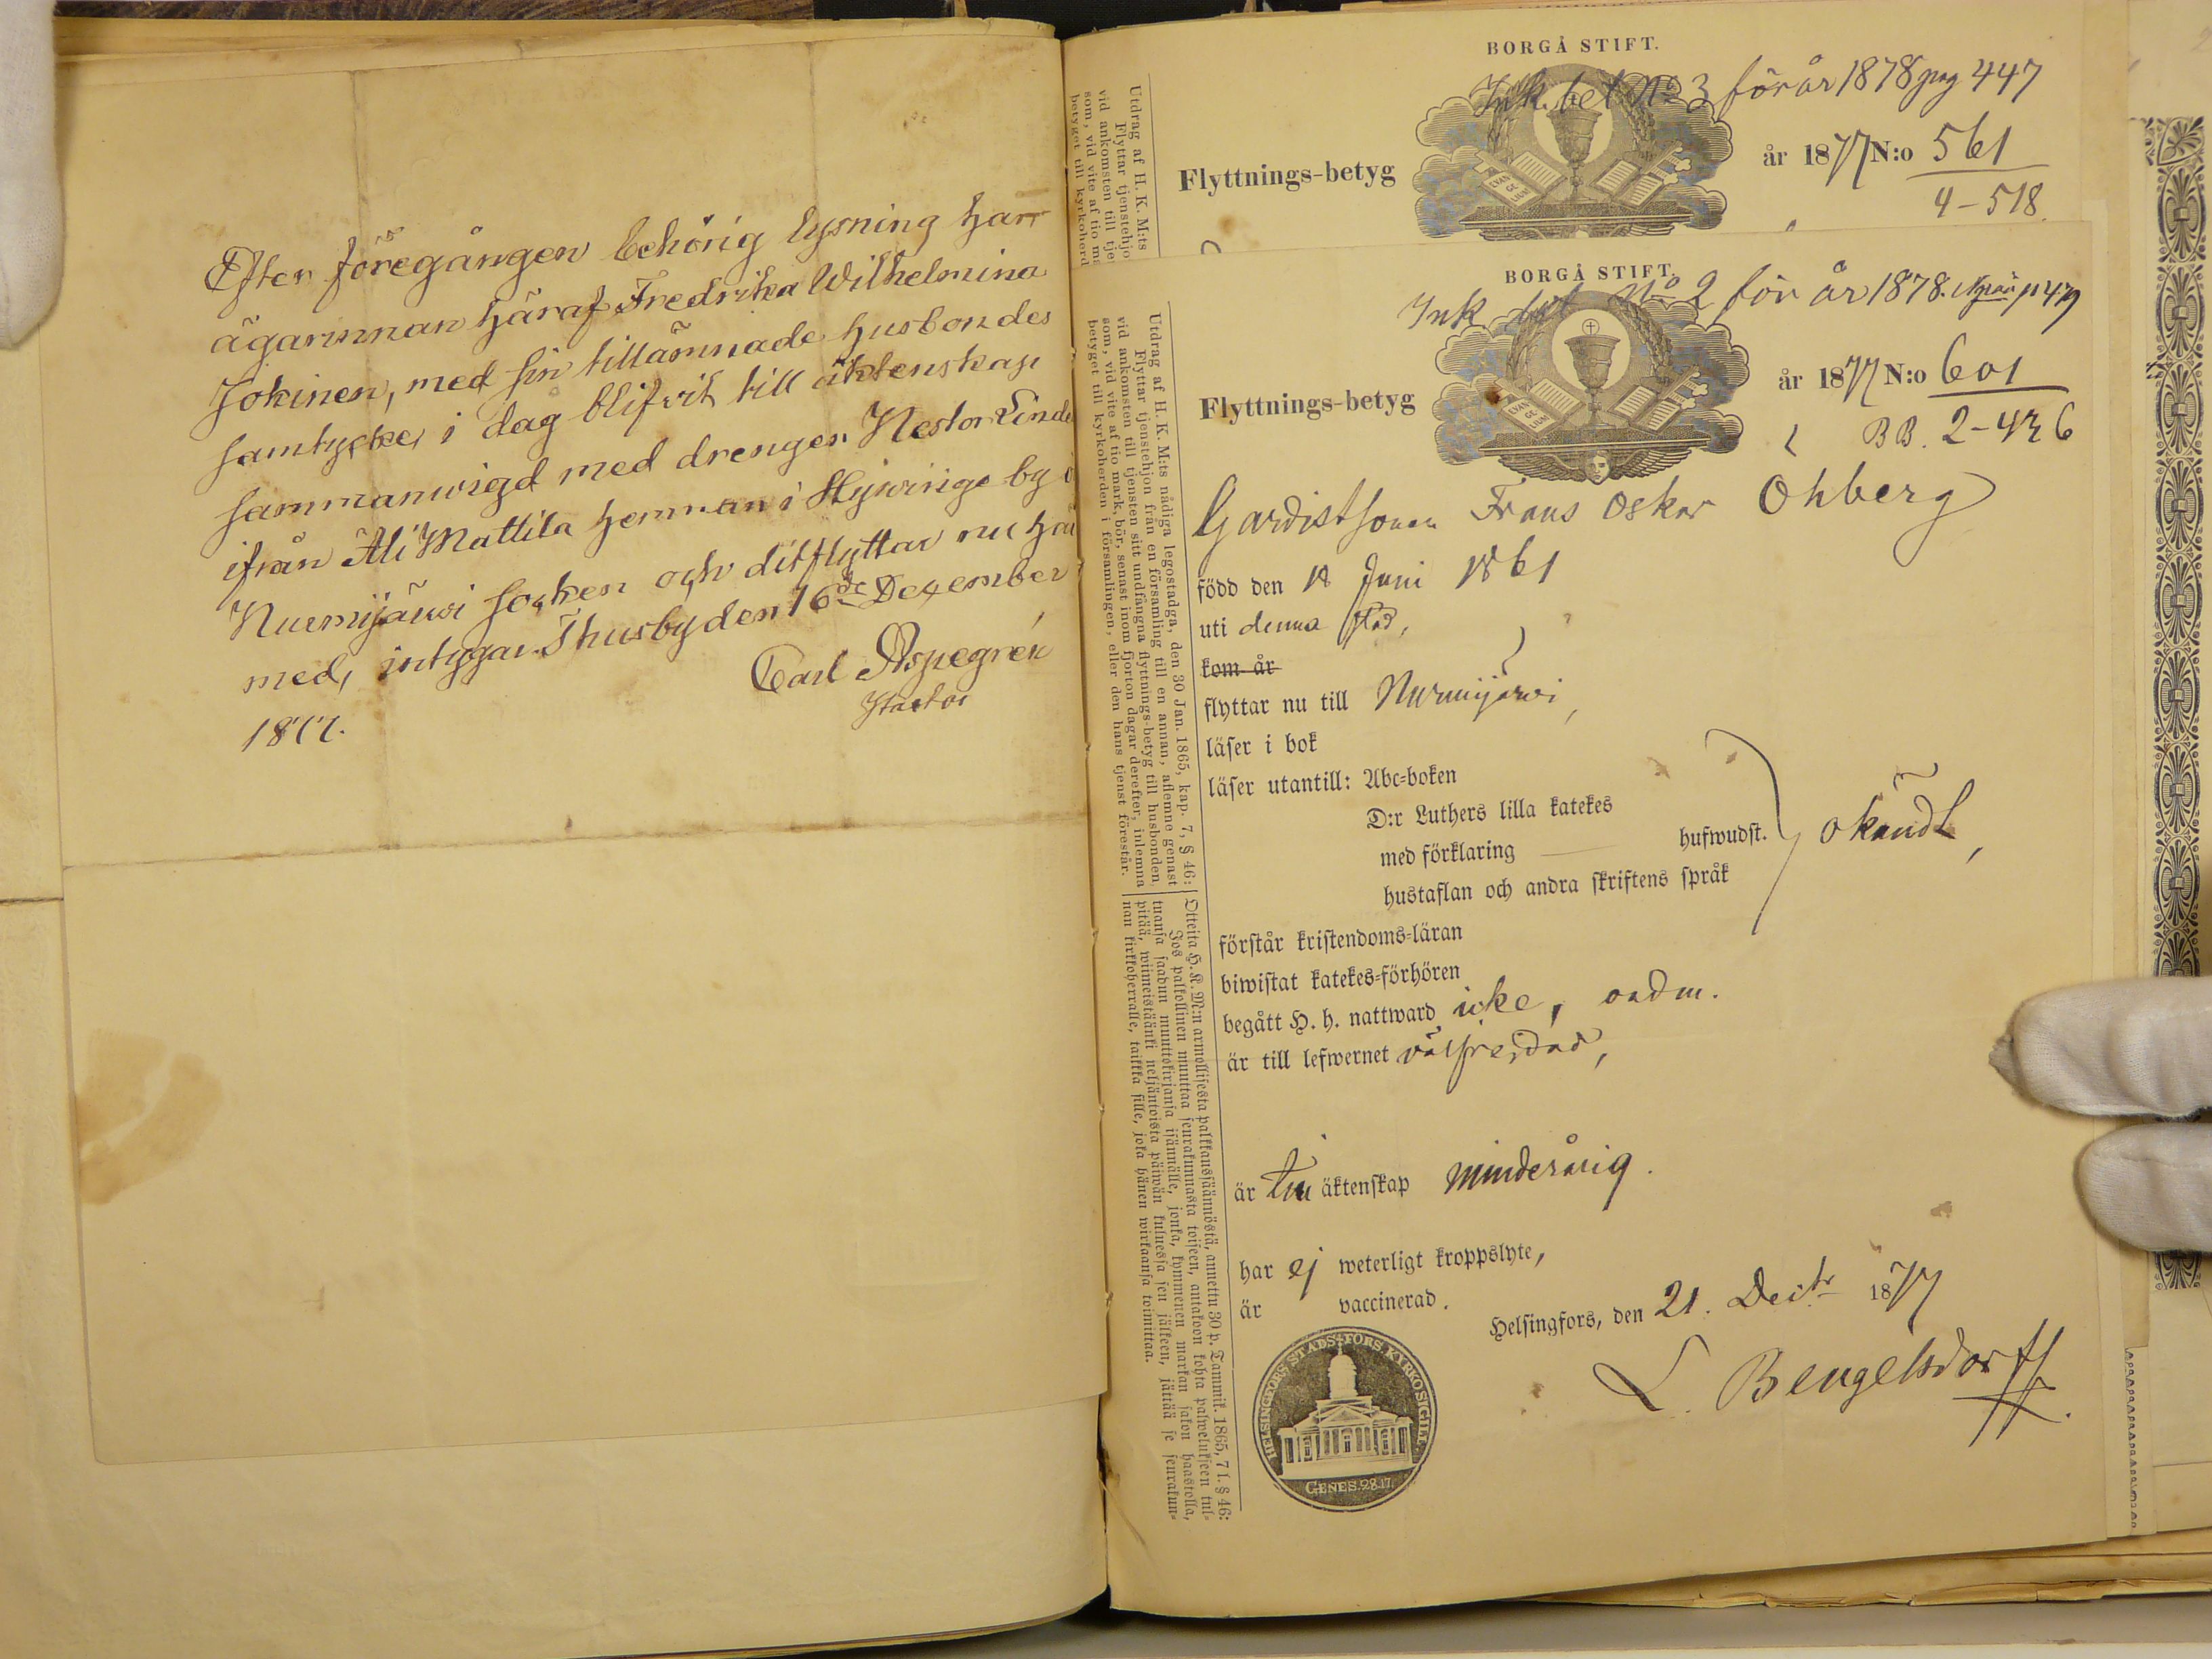 Efter föregången behörig lysning har
ägarinnan häraf Fredrika Wilhelmina
Jokinen, med sin tillämnade husbondes
samtycke, i dag blifvit till äktenskap
sammanwigd med drengen Nestor Linde
ifrån Ali Mattila hemman i Hyvinge by i
Nurmijärvi socken och ditflyttar nu här
med, intygar. Thusby den 16de December
1877.
Carl Aspegrén
Pastor
BORGÅ STIFT.
Ink. bet No 3 för år 1878 pag 447
Flyttnings-betyg
år 1877 N:o 561
4-518.
Utdrag af H. K. M:ts
Flyttar tjenstehjo
vid ankomsten till tje
som, vid vite af tio ma
betyget till kyrkoherd
BORGÅ STIFT.
Ink bet No 2 för år 1878.
Flyttnings-betyg
år 1877 N:o 601
BB. 2-
Gardistsonen Frans Oskar Ohberg
född den 18 Juni 1861
uti denna stad,
kom år
flyttar nu till Nurmijärvi,
läser i bok
läser utantill: Abc-boken
D:r Luthers lilla katekes
med förklaring hufwudst.
hustaflan och andra skriftens språk
okändt,
förstår kristendoms-läran
biwistat katekes-förhören
begått H. h. nattward icke, oadm.
är till lefwernet välfrejdad,
är till äktenskap minderårig.
har ej weterligt kroppslyte,
är vaccinerad.
Helsingfors, den 21. Decbr 1877
L. Bengelsdorff.
HELSINGFORS STADS FÖRS. KYRKO SIGILL.
GENES. 28.17.
Utdrag af H. K. M:ts nådiga legostadga, den 30 Jan. 1865, kap. 7, § 46:
Flyttar tjenstehjon från en församling till en annan, aflemne genast
vid ankomsten till tjensten sitt undfångna flyttnings-betyg till husbonden,
som, vid vite af tio mark, bör, senast inom fjorton dagar derefter, inlemna
betyget till kyrkoherden i församlingen, eller den hans tjenst förestår.
Otteita H. K. M:n armollisesta palkkaussäännöstä, annettu 30 p. Tammik. 1865, 7 l. § 46:
Jos palkollinen muuttaa seurakunnasta toiseen, antakoon kohta palwelukseen tul=
tuansa saadun muuttokirjansa isännälle, jonka, kymmenen markan sakon haastolla,
pitää, wiimeistäänki neljäntoista päiwän kuluessa sen jälkeen, jättää se seurakun=
nan kirkkoherralle, taikka sille, joka hänen wirkaansa toimittaa.